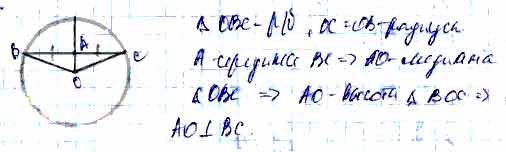 B A C
O
△ OBC - р/б, OC = OB - радиусы
A - середина BC => AO - медиана
△ OBC => AO - высота △ BOC =>
AO ⊥ BC.